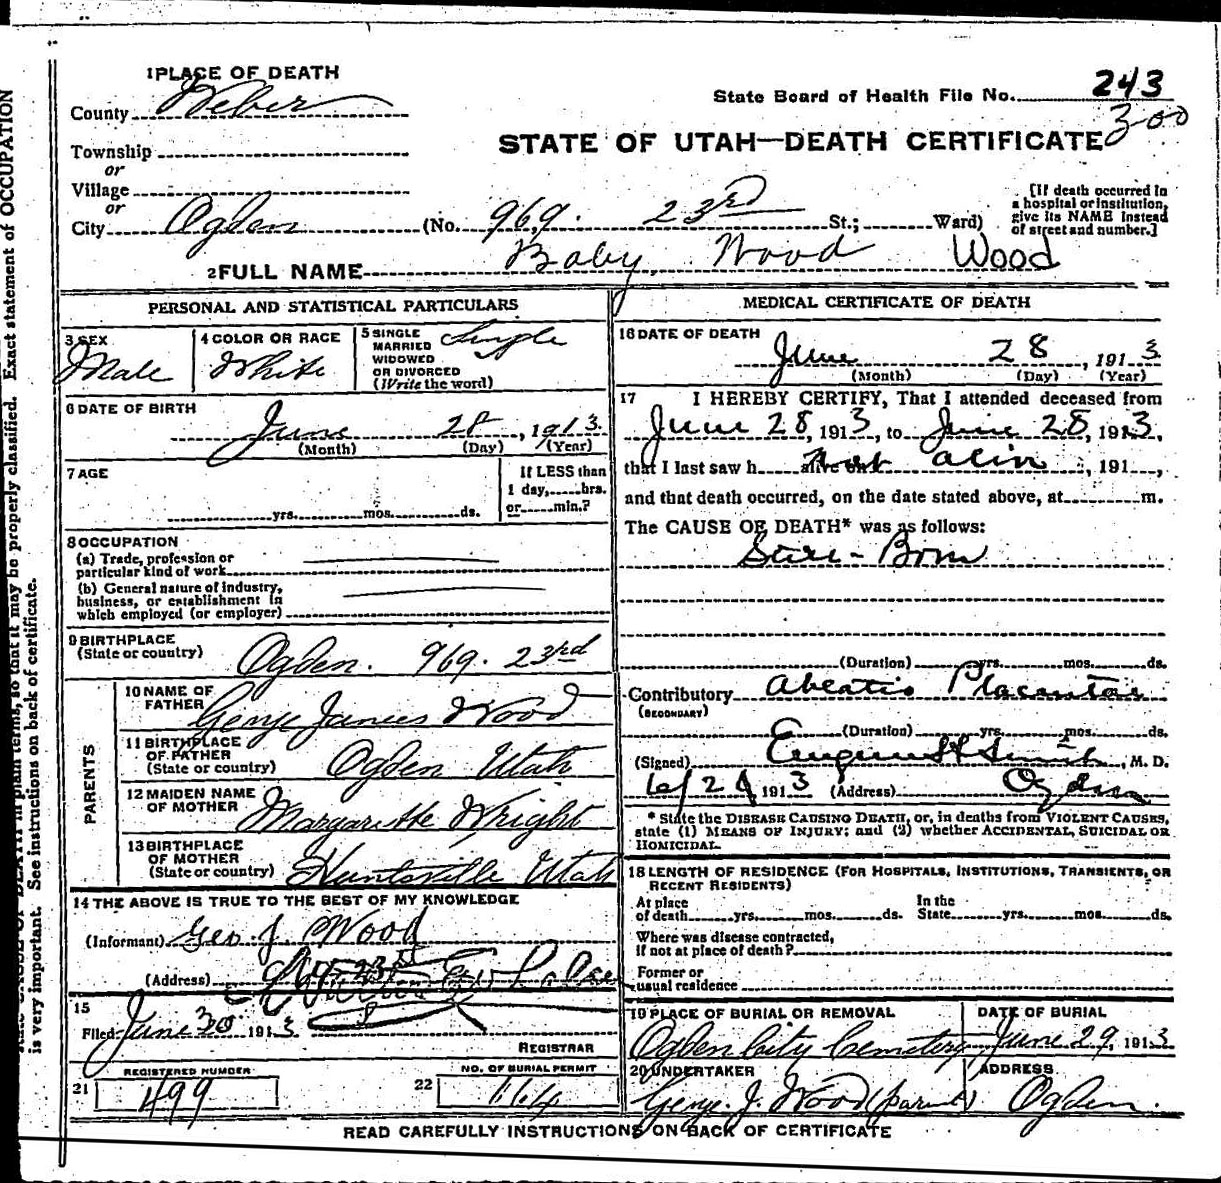 1 PLACE OF DEATH
County Weber
State Board of Health File No. 243
300
STATE OF UTAH—DEATH CERTIFICATE
Township
or
Village
or
City Ogden (No. 969. 23rd St.; Ward)
[If death occurred in a hospital or institution, give its NAME instead of street and number.]
2 FULL NAME Baby Wood Wood
PERSONAL AND STATISTICAL PARTICULARS
3 SEX Male
4 COLOR OR RACE White
5 SINGLE MARRIED WIDOWED OR DIVORCED (Write the word) Single
6 DATE OF BIRTH
June 28, 1913
(Month) (Day) (Year)
7 AGE
yrs. mos. ds.
If LESS than 1 day, hrs. or min.?
8 OCCUPATION
(a) Trade, profession or
particular kind of work
(b) General nature of industry,
business, or establishment in
which employed (or employer)
9 BIRTHPLACE
(State or country) Ogden. 969. 23rd
PARENTS
10 NAME OF FATHER George James Wood
11 BIRTHPLACE OF FATHER (State or country) Ogden Utah
12 MAIDEN NAME OF MOTHER Wright
13 BIRTHPLACE OF MOTHER (State or country) Huntsville Utah
14 THE ABOVE IS TRUE TO THE BEST OF MY KNOWLEDGE
(Informant) Geo J. Wood
(Address)
15
Filed June 30 1913
REGISTRAR
21 REGISTERED NUMBER 499
22 NO. OF BURIAL PERMIT 164
MEDICAL CERTIFICATE OF DEATH
16 DATE OF DEATH
June 28, 1913
(Month) (Day) (Year)
17 I HEREBY CERTIFY, That I attended deceased from
June 28, 1913, to June 28, 1913,
that I last saw h , 191 ,
and that death occurred, on the date stated above, at m.
The CAUSE OF DEATH* was as follows:
Still-Born
(Duration) yrs. mos. ds.
Contributory
(SECONDARY)
(Duration) yrs. mos. ds.
(Signed) Eugene H Smith, M. D.
1913 (Address) Ogden
* State the DISEASE CAUSING DEATH, or, in deaths from VIOLENT CAUSES,
state (1) MEANS OF INJURY; and (2) whether ACCIDENTAL, SUICIDAL OR
HOMICIDAL.
18 LENGTH OF RESIDENCE (FOR HOSPITALS, INSTITUTIONS, TRANSIENTS, OR
RECENT RESIDENTS)
At place of death yrs. mos. ds. In the State yrs. mos. ds.
Where was disease contracted,
if not at place of death?
Former or
usual residence
19 PLACE OF BURIAL OR REMOVAL DATE OF BURIAL
Ogden City Cemetery June 29, 1913
20 UNDERTAKER ADDRESS
George J. Wood (parent) Ogden.
READ CAREFULLY INSTRUCTIONS ON BACK OF CERTIFICATE
in plain terms, so that it may be properly classified. Exact statement of OCCUPATION
is very important. See instructions on back of certificate.